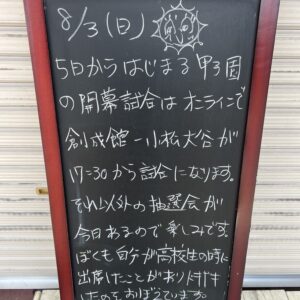 8/3(日)
5日からはじまる甲子園
の開幕試合はオンラインで
創成館-小松大谷が
17:30から試合になります。
それ以外の抽選会が
今日あるので楽しみです。
ぼくも自分が高校生の時に
出席したことがあり
したのをおぼえています。